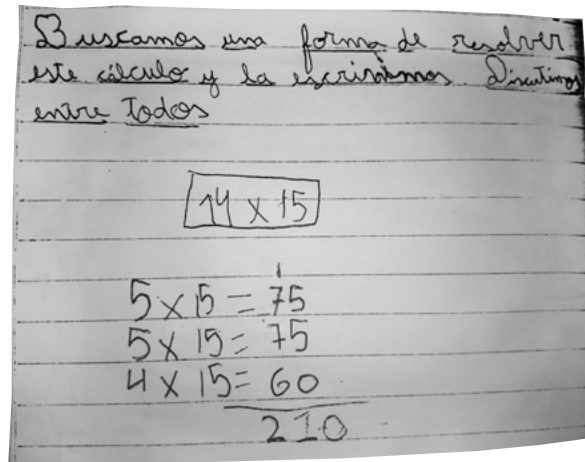 Buscamos una forma de resolver
este cálculo y la escribimos Discutimos
entre Todos
14 x 15
1
5 x 15 = 75
5 x 15 = 75
4 x 15 = 60
210